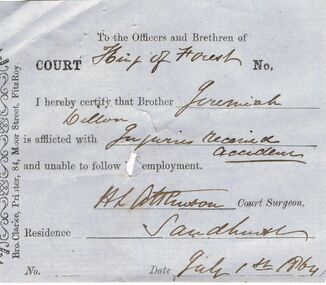 To the Officers and Brethren of
COURT King of Forest No,
I hereby certify that Brother Jeremiah
Dillon
is afflicted with Injuries received
accident
and unable to follow employment.
H L Atkinson Court Surgeon.
Residence Sandhurst
No. Date July 1st 1864
Bro. Clarke, Printer, 84, Moor Street, FitzRoy.